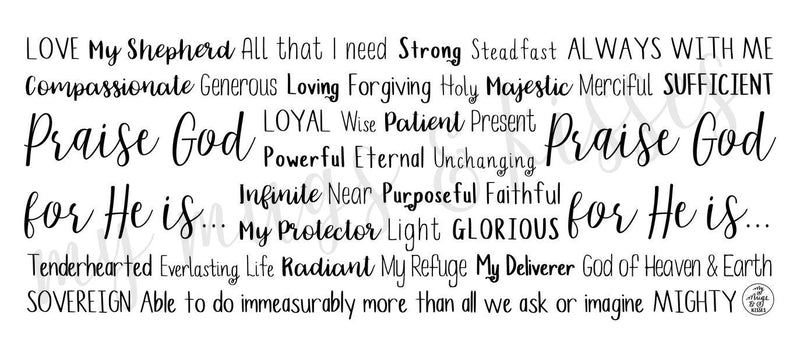 LOVE My Shepherd All that I need Strong Steadfast ALWAYS WITH ME
Compassionate Generous Loving Forgiving Holy Majestic Merciful SUFFICIENT
Praise God
for He is...
LOYAL Wise Patient Present
Powerful Eternal Unchanging
Infinite Near Purposeful Faithful
My Protector Light GLORIOUS
Praise God
for He is...
Tenderhearted Everlasting Life Radiant My Refuge My Deliverer God of Heaven & Earth
SOVEREIGN Able to do immeasurably more than all we ask or imagine MIGHTY
my Mugs & KISSES
my mugs & kisses